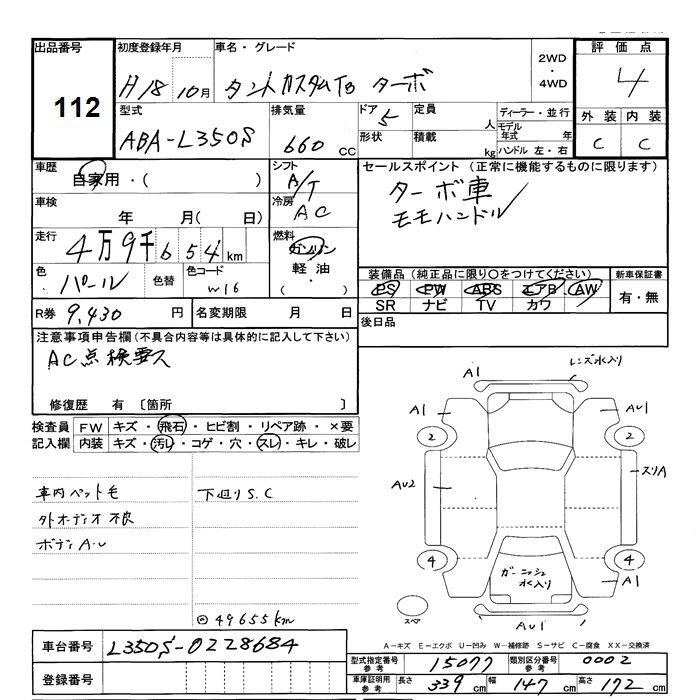 出品番号 初度登録年月 車名・グレード 2WD・4WD 評価点
112 H18 10月 タントカスタム ターボ 4
型式 排気量 ドア 定員 ディーラー・並行 外装 内装
ABA-L350S 660cc 5 人 モデル年式 年 C C
形状 積載 kg ハンドル 左・右
車歴 自家用・( ) シフト A/T セールスポイント(正常に機能するものに限ります)
車検 年 月( 日) 冷房 AC ターボ車
モモハンドル
走行 4万9千654km 燃料 ガソリン
軽油
( ・ )
色 パール 色替 色コード W16 装備品(純正品に限り○をつけてください) 新車保証書
PS PW ABS エアB AW 有・無
SR ナビ TV カワ
R券 9,430円 名変期限 月 日 後日品
注意事項申告欄(不具合内容等は具体的に記入して下さい)
AC点検要ス
修復歴 有 [箇所 ]
検査員 FW キズ・飛石・ヒビ割・リペア跡・×要
記入欄 内装 キズ・汚レ・コゲ・穴・スレ・キレ・破レ
車内ペット毛 下廻りS.C
外オーディオ不良
ボディA・U
◎49655km
A1 レンズ水入り
A1 AU1
2 2
AU2 スリA
4 4
ガーニッシュ
水入り A1
スペア AU1
A-キズ E-エクボ U-凹み W-補修跡 S-サビ C-腐食 XX-交換済
車台番号 L350S-0228684
型式指定番号 参考 15077 類別区分番号 参考 0002
登録番号
車庫証明用 参考 長さ 339cm 幅 147cm 高さ 172cm